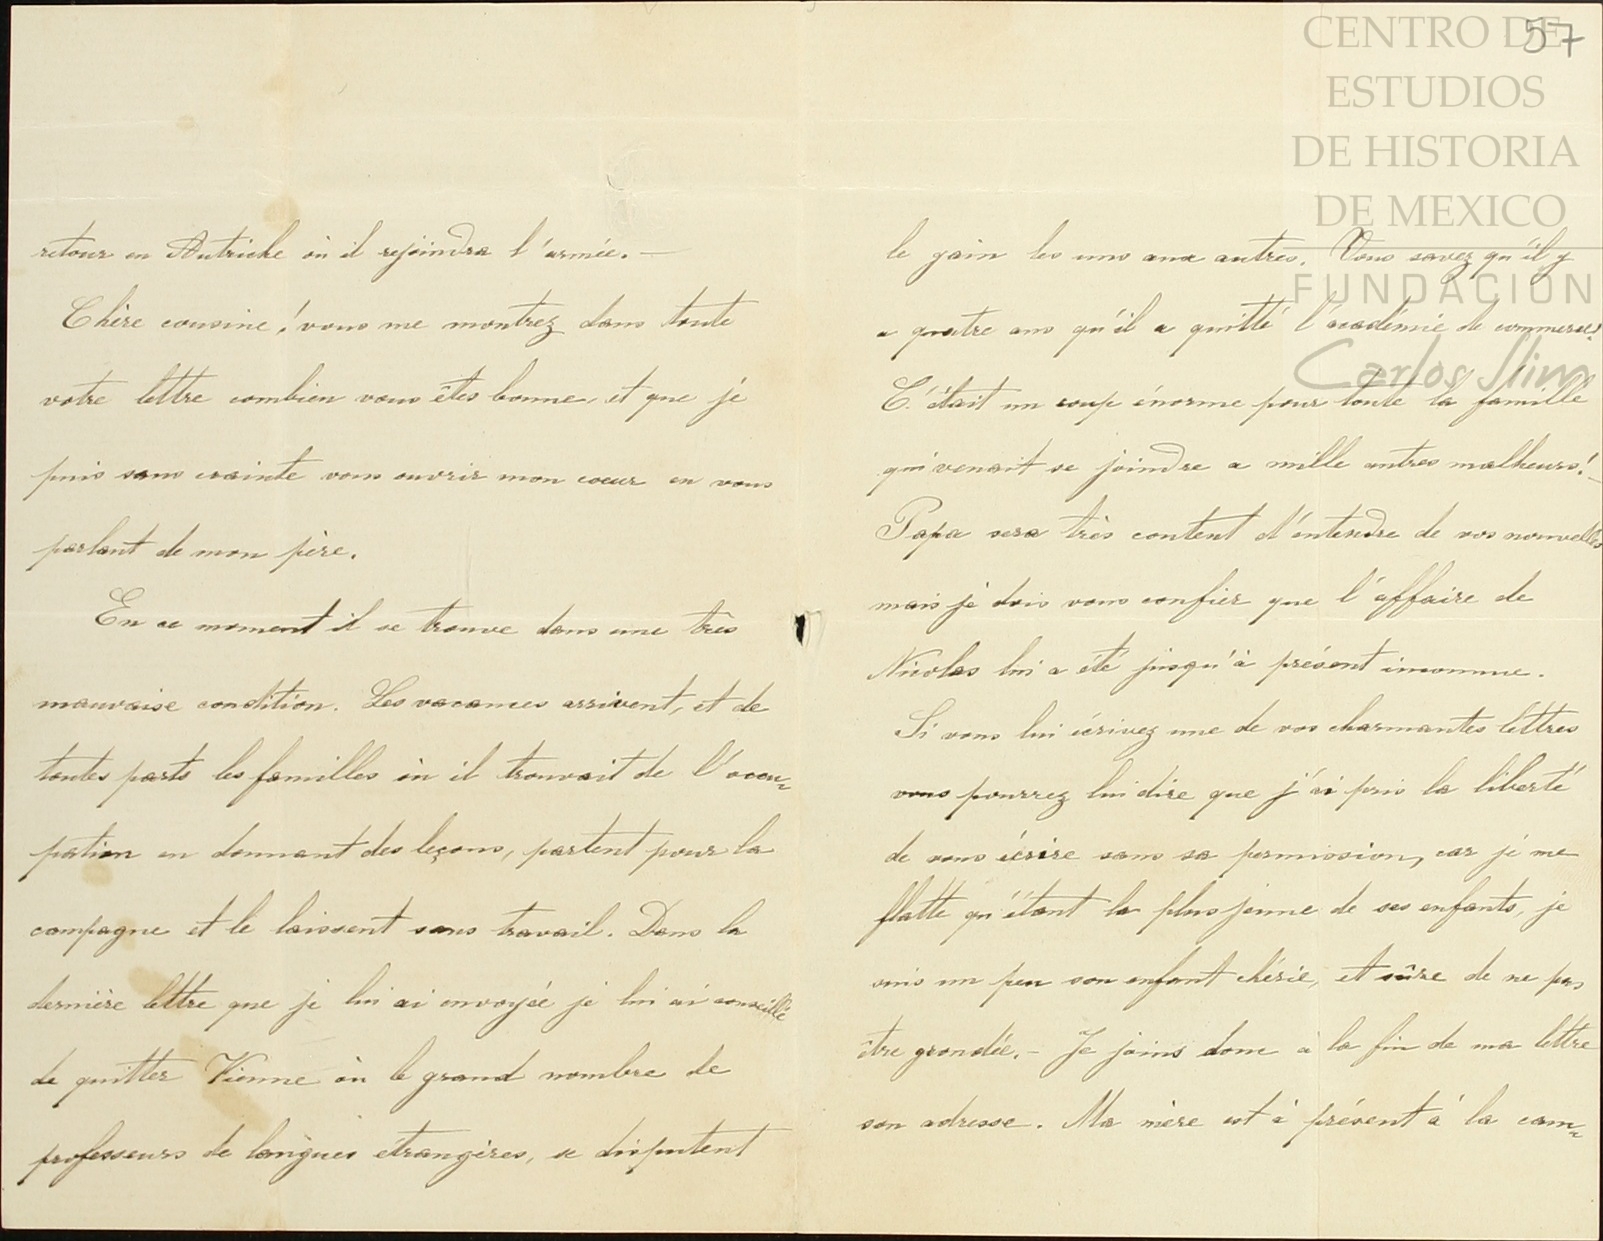 retour en Autriche où il rejoindra l'armée. —
Chère cousine! vous me montrez dans toute
votre lettre combien vous êtes bonne, et que je
puis sans crainte vous ouvrir mon coeur en vous
parlant de mon père.
En ce moment il se trouve dans une très
mauvaise condition. Les vacances arrivent, et de
toutes parts les familles où il trouvait de l'occu=
pation en donnant des leçons, partent pour la
campagne et le laissent sans travail. Dans la
dernière lettre que je lui ai envoyée je lui ai conseillé
de quitter Vienne où le grand nombre de
professeurs de langues étrangères, se disputent
57
le gain les uns aux autres. Vous savez qu'il y
a quatre ans qu'il a quitté l'académie de commerce!
C'était un coup énorme pour toute la famille
qui venait se joindre a mille autres malheurs! —
Papa sera très content d'entendre de vos nouvelles
mais je dois vous confier que l'affaire de
Nicolas lui a été jusqu'à présent inconnue.
Si vous lui écrivez une de vos charmantes lettres
vous pourrez lui dire que j'ai pris la liberté
de vous écrire sans sa permission, car je me
flatte qu'étant la plus jeune de ses enfants, je
suis un peu son enfant chérie, et sûre de ne pas
être grondée. – Je joins donc à la fin de ma lettre
son adresse. Ma mère est à présent à la cam=
CENTRO DE
ESTUDIOS
DE HISTORIA
DE MEXICO
FUNDACIÓN
Carlos Slim